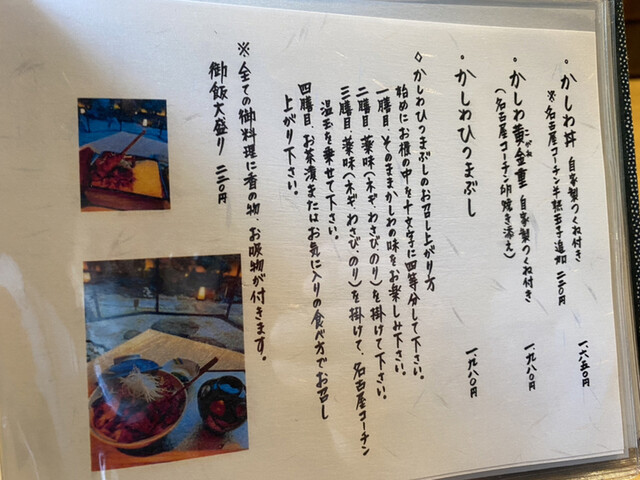 ・かしわ丼 自家製つくね付き 一六五〇円
※名古屋コーチン半熟玉子追加 二二〇円
・かしわ黄金重 自家製つくね付き 一九八〇円
(名古屋コーチン卵焼き添え)
・かしわひつまぶし 一九八〇円
◇かしわひつまぶしのお召し上がり方
始めにお櫃の中を十文字に四等分して下さい。
一膳目、そのままかしわの味をお楽しみ下さい。
二膳目、薬味(ネギ、わさび、のり)を掛けて下さい。
三膳目、薬味(ネギ、わさび、のり)を掛けて、名古屋コーチン
温玉を乗せて下さい。
四膳目、お茶漬またはお気に入りの食べ方でお召し
上がり下さい。
※全ての御料理に香の物、お吸物が付きます。
御飯大盛り 二二〇円